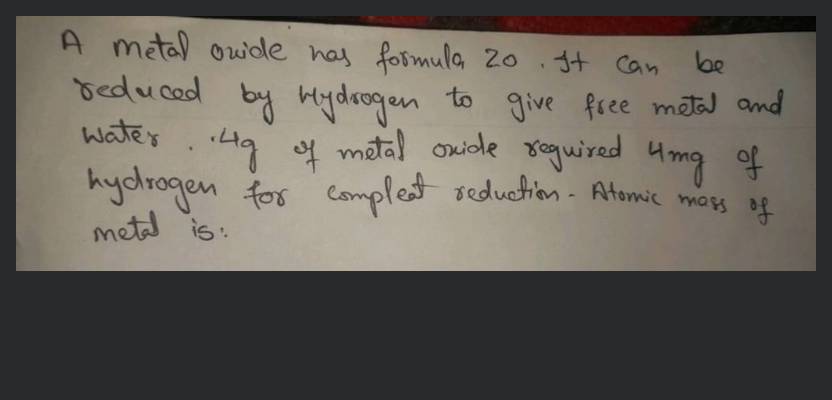 A metal oxide has formula 20 . It can be
reduced by Hydrogen to give free metal and
water . .4g of metal oxide required 4mg of
hydrogen for compleat reduction - Atomic mass of
metal is: